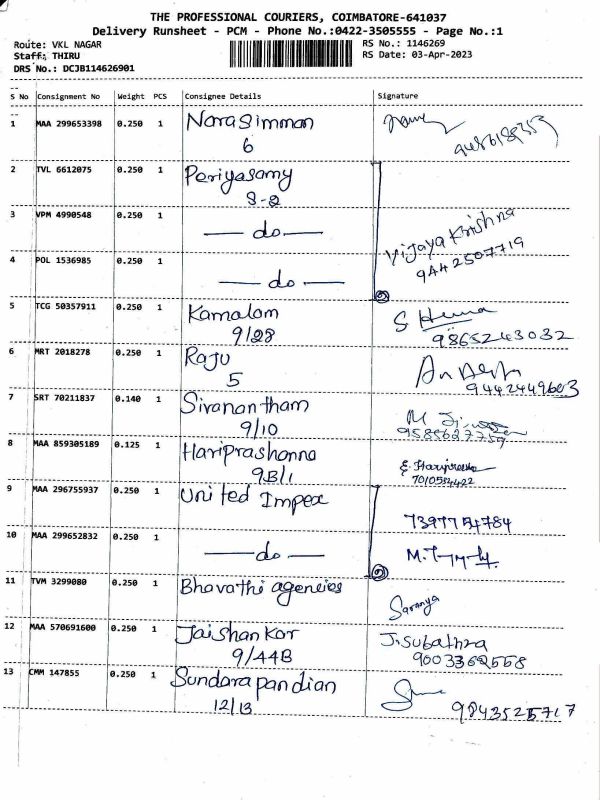 THE PROFESSIONAL COURIERS, COIMBATORE-641037
Delivery Runsheet - PCM - Phone No.:0422-3505555 - Page No.:1
Route: VKL NAGAR
RS No.: 1146269
Staff: THIRU
RS Date: 03-Apr-2023
DRS No.: DCJB114626901
S No Consignment No Weight PCS Consignee Details Signature
1 MAA 299653398 0.250 1 Narasimman
6
2 TVL 6612075 0.250 1 Periyasamy
S-2
3 VPM 4990548 0.250 1 — do — Vijaya Krishna
9442507719
4 POL 1536985 0.250 1 — do —
5 TCG 50357911 0.250 1 Kamalam S Hema
9/28 9865243032
6 MRT 2018278 0.250 1 Raju
5 9442449603
7 SRT 70211837 0.140 1 Sivanantham
9/10
8 MAA 859305189 0.125 1 Hariprashanna
9B/1
9 MAA 296755937 0.250 1 United Impex
10 MAA 299652832 0.250 1 — do —
11 TVM 3299080 0.250 1 Bhavathi agencies Saranya
12 MAA 570691600 0.250 1 Jaishankar J.Subathra
9/44B 9003362558
13 CMM 147855 0.250 1 Sundarapandian
12/13 9843525717